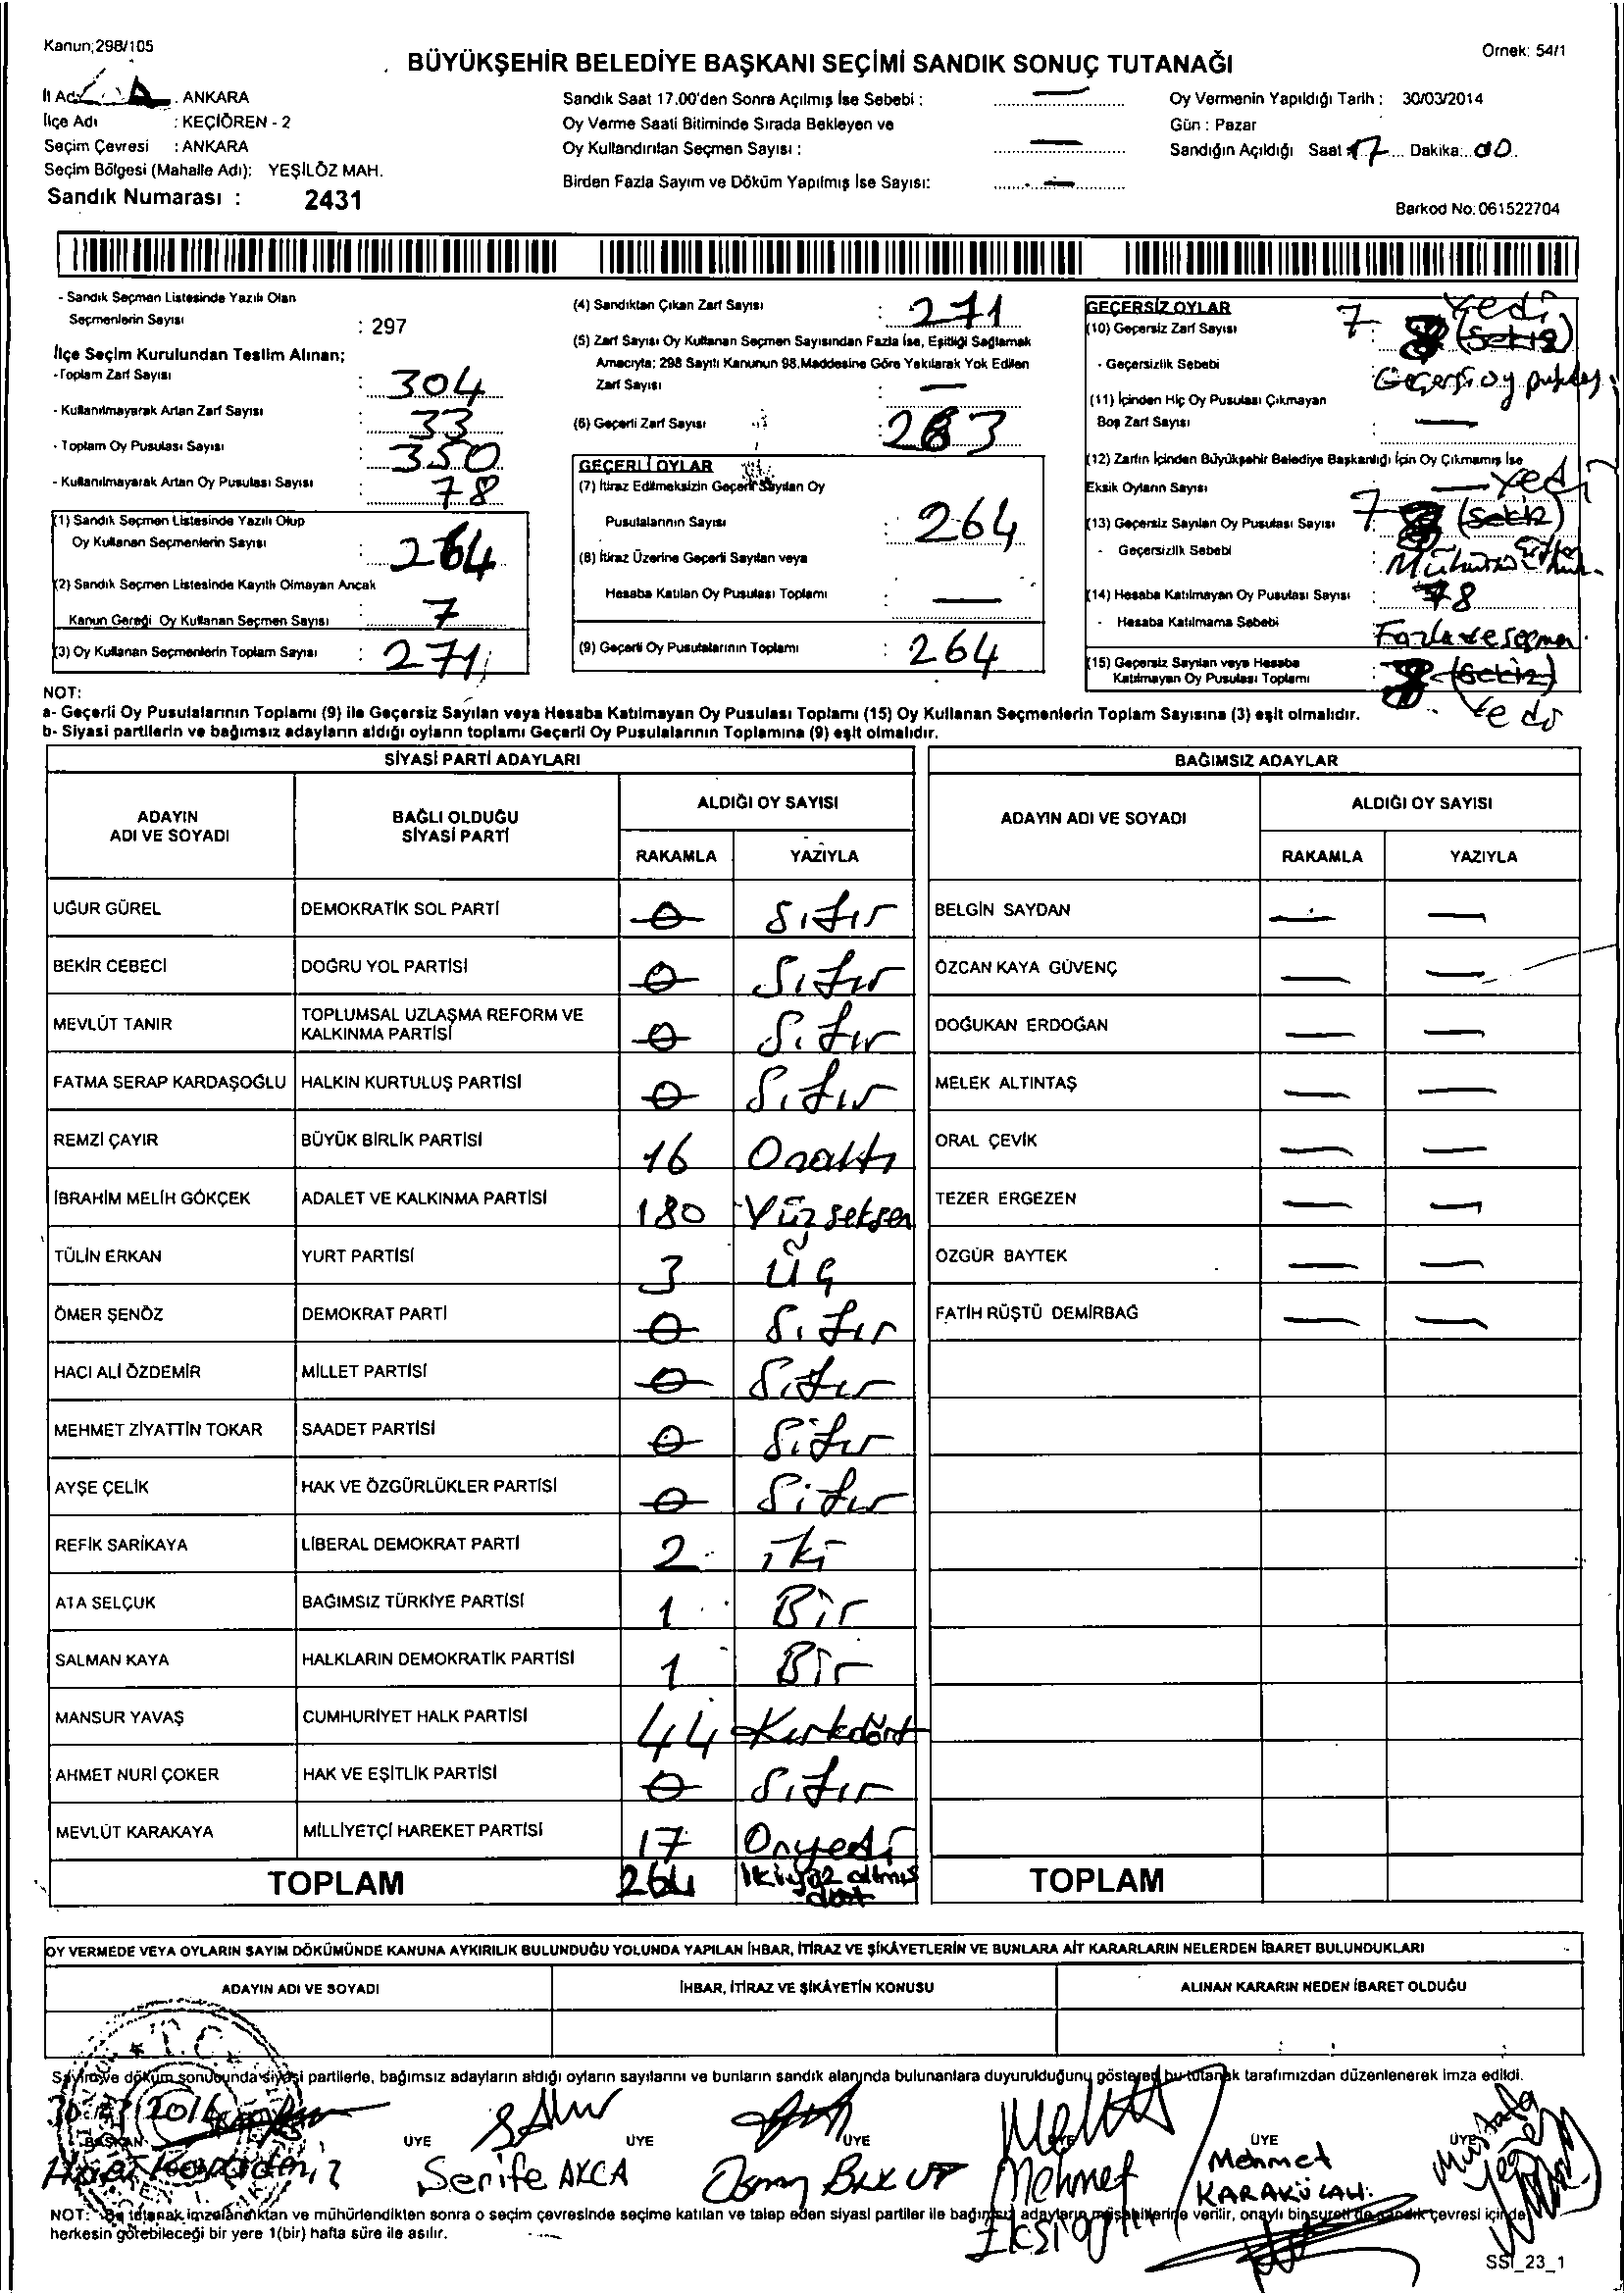 Kanun;298/105
Örnek: 54/1
BÜYÜKŞEHİR BELEDİYE BAŞKANI SEÇİMİ SANDIK SONUÇ TUTANAĞI
İl Adı : ANKARA
İlçe Adı : KEÇİÖREN - 2
Seçim Çevresi : ANKARA
Seçim Bölgesi (Mahalle Adı): YEŞİLÖZ MAH.
Sandık Numarası : 2431
Sandık Saat 17.00'den Sonra Açılmış İse Sebebi : —
Oy Verme Saati Bitiminde Sırada Bekleyen ve
Oy Kullandırılan Seçmen Sayısı : —
Birden Fazla Sayım ve Döküm Yapılmış İse Sayısı: —
Oy Vermenin Yapıldığı Tarih : 30/03/2014
Gün : Pazar
Sandığın Açıldığı Saat 17 Dakika: 00
Barkod No: 061522704
- Sandık Seçmen Listesinde Yazılı Olan
Seçmenlerin Sayısı : 297
İlçe Seçim Kurulundan Teslim Alınan;
- Toplam Zarf Sayısı : 304
- Kullanılmayarak Artan Zarf Sayısı : 33
- Toplam Oy Pusulası Sayısı : 350
- Kullanılmayarak Artan Oy Pusulası Sayısı : 78
(1) Sandık Seçmen Listesinde Yazılı Olup
Oy Kullanan Seçmenlerin Sayısı : 264
(2) Sandık Seçmen Listesinde Kayıtlı Olmayan Ancak
Kanun Gereği Oy Kullanan Seçmen Sayısı : 7
(3) Oy Kullanan Seçmenlerin Toplam Sayısı : 271
(4) Sandıktan Çıkan Zarf Sayısı : 271
(5) Zarf Sayısı Oy Kullanan Seçmen Sayısından Fazla İse, Eşitliği Sağlamak
Amacıyla; 298 Sayılı Kanunun 98.Maddesine Göre Yakılarak Yok Edilen
Zarf Sayısı : —
(6) Geçerli Zarf Sayısı : 263
GEÇERLİ OYLAR
(7) İtiraz Edilmeksizin Geçerli Sayılan Oy
Pusulalarının Sayısı : 264
(8) İtiraz Üzerine Geçerli Sayılan veya
Hesaba Katılan Oy Pusulası Toplamı : —
(9) Geçerli Oy Pusulalarının Toplamı : 264
GEÇERSİZ OYLAR
(10) Geçersiz Zarf Sayısı 7 8 (Sekiz) Yedi
- Geçersizlik Sebebi
(11) İçinden Hiç Oy Pusulası Çıkmayan
Boş Zarf Sayısı : —
(12) Zarfın İçinden Büyükşehir Belediye Başkanlığı İçin Oy Çıkmamış İse
Eksik Oyların Sayısı —
(13) Geçersiz Sayılan Oy Pusulası Sayısı 7 8 (Sekiz) Yedi
- Geçersizlik Sebebi
(14) Hesaba Katılmayan Oy Pusulası Sayısı : 78
- Hesaba Katılmama Sebebi
(15) Geçersiz Sayılan veya Hesaba
Katılmayan Oy Pusulası Toplamı : 8 (Sekiz)
Yedi
NOT:
a- Geçerli Oy Pusulalarının Toplamı (9) ile Geçersiz Sayılan veya Hesaba Katılmayan Oy Pusulası Toplamı (15) Oy Kullanan Seçmenlerin Toplam Sayısına (3) eşit olmalıdır.
b- Siyasi partilerin ve bağımsız adayların aldığı oyların toplamı Geçerli Oy Pusulalarının Toplamına (9) eşit olmalıdır.
SİYASİ PARTİ ADAYLARI
ADAYIN ADI VE SOYADI BAĞLI OLDUĞU SİYASİ PARTİ ALDIĞI OY SAYISI
RAKAMLA YAZIYLA
UĞUR GÜREL DEMOKRATİK SOL PARTİ 0 Sıfır
BEKİR CEBECİ DOĞRU YOL PARTİSİ 0 Sıfır
MEVLÜT TANIR TOPLUMSAL UZLAŞMA REFORM VE KALKINMA PARTİSİ 0 Sıfır
FATMA SERAP KARDAŞOĞLU HALKIN KURTULUŞ PARTİSİ 0 Sıfır
REMZİ ÇAYIR BÜYÜK BİRLİK PARTİSİ 16 Onaltı
İBRAHİM MELİH GÖKÇEK ADALET VE KALKINMA PARTİSİ 180 Yüzseksen
TÜLİN ERKAN YURT PARTİSİ 3 Üç
ÖMER ŞENÖZ DEMOKRAT PARTİ 0 Sıfır
HACI ALİ ÖZDEMİR MİLLET PARTİSİ 0 Sıfır
MEHMET ZİYATTİN TOKAR SAADET PARTİSİ 0 Sıfır
AYŞE ÇELİK HAK VE ÖZGÜRLÜKLER PARTİSİ 0 Sıfır
REFİK SARİKAYA LİBERAL DEMOKRAT PARTİ 2 iki
ATA SELÇUK BAĞIMSIZ TÜRKİYE PARTİSİ 1 Bir
SALMAN KAYA HALKLARIN DEMOKRATİK PARTİSİ 1 Bir
MANSUR YAVAŞ CUMHURİYET HALK PARTİSİ 44 Kırkdört
AHMET NURİ ÇOKER HAK VE EŞİTLİK PARTİSİ 0 Sıfır
MEVLÜT KARAKAYA MİLLİYETÇİ HAREKET PARTİSİ 17 Onyedi
TOPLAM 264 ikiyüz altmış dört
BAĞIMSIZ ADAYLAR
ADAYIN ADI VE SOYADI ALDIĞI OY SAYISI
RAKAMLA YAZIYLA
BELGİN SAYDAN — —
ÖZCAN KAYA GÜVENÇ — —
DOĞUKAN ERDOĞAN — —
MELEK ALTINTAŞ — —
ORAL ÇEVİK — —
TEZER ERGEZEN — —
ÖZGÜR BAYTEK — —
FATİH RÜŞTÜ DEMİRBAĞ — —
TOPLAM
OY VERMEDE VEYA OYLARIN SAYIM DÖKÜMÜNDE KANUNA AYKIRILIK BULUNDUĞU YOLUNDA YAPILAN İHBAR, İTİRAZ VE ŞİKÂYETLERİN VE BUNLARA AİT KARARLARIN NELERDEN İBARET BULUNDUKLARI
ADAYIN ADI VE SOYADI İHBAR, İTİRAZ VE ŞİKÂYETİN KONUSU ALINAN KARARIN NEDEN İBARET OLDUĞU
T.C.
Sayım ve döküm sonucunda siyasi partilerle, bağımsız adayların aldığı oyların sayılarını ve bunların sandık alanında bulunanlara duyurulduğunu gösteren bu tutanak tarafımızdan düzenlenerek imza edildi.
BAŞKAN ÜYE ÜYE ÜYE ÜYE ÜYE ÜYE
Serife AKCA Mehmet Mehmet
KARAKÜLAH Mustafa
NOT: Bu tutanak imzalandıktan ve mühürlendikten sonra o seçim çevresinde seçime katılan ve talep eden siyasi partiler ile bağımsız adayların müşahitlerine verilir, onaylı bir sureti de sandık çevresi içinde
herkesin görebileceği bir yere 1(bir) hafta süre ile asılır.
SSİ_23_1